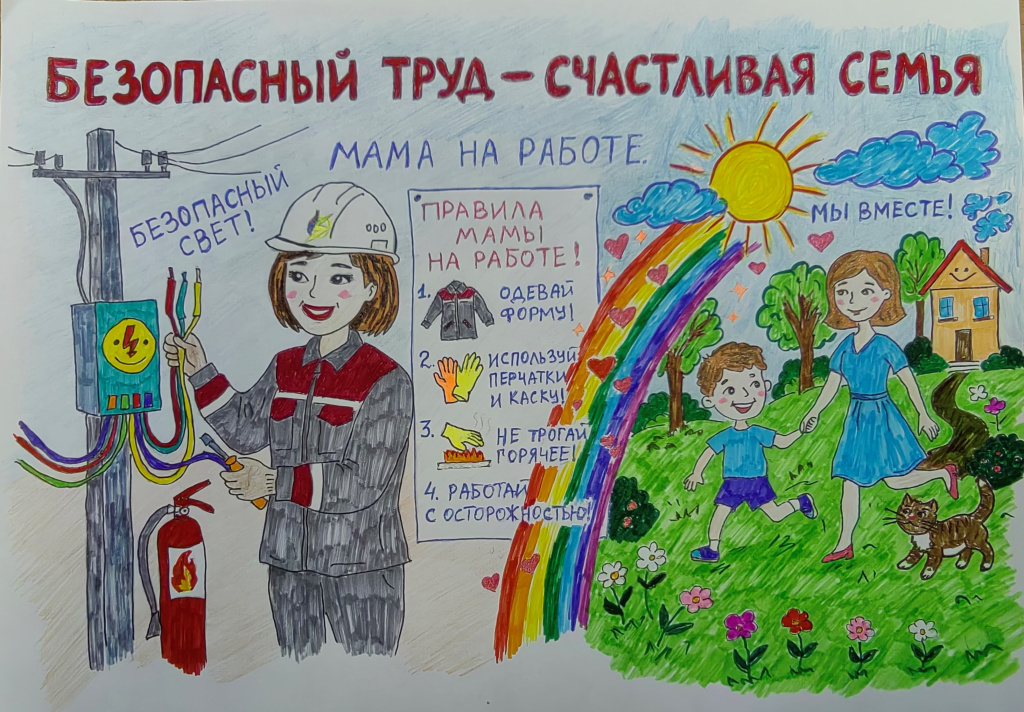 БЕЗОПАСНЫЙ ТРУД – СЧАСТЛИВАЯ СЕМЬЯ
МАМА НА РАБОТЕ.
БЕЗОПАСНЫЙ
СВЕТ!
ПРАВИЛА
МАМЫ
НА РАБОТЕ!
1. ОДЕВАЙ
ФОРМУ!
2. ИСПОЛЬЗУЙ
ПЕРЧАТКИ
И КАСКУ!
3. НЕ ТРОГАЙ
ГОРЯЧЕЕ!
4. РАБОТАЙ
С ОСТОРОЖНОСТЬЮ!
МЫ ВМЕСТЕ!